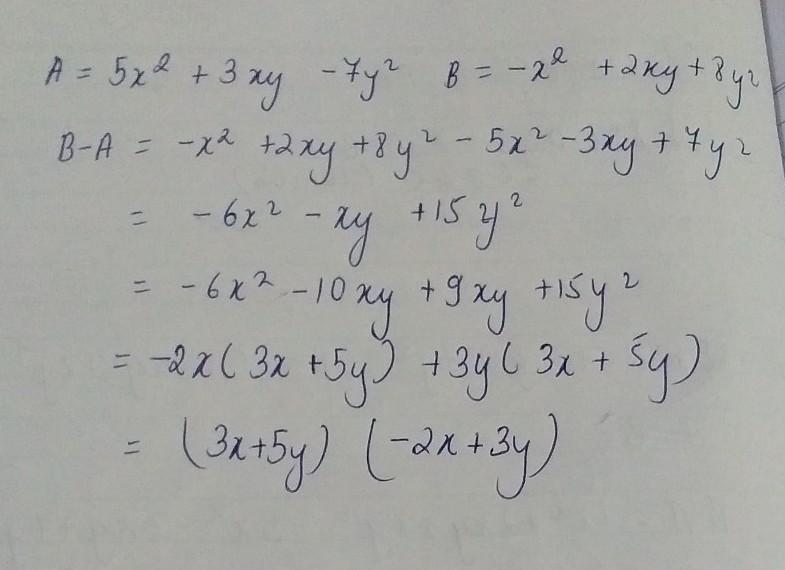 A = 5x² + 3xy - 7y² B = -x² + 2xy + 8y²
B-A = -x² + 2xy + 8y² - 5x² - 3xy + 7y²
= -6x² - xy + 15y²
= -6x² - 10xy + 9xy + 15y²
= -2x(3x + 5y) + 3y(3x + 5y)
= (3x+5y) (-2x+3y)